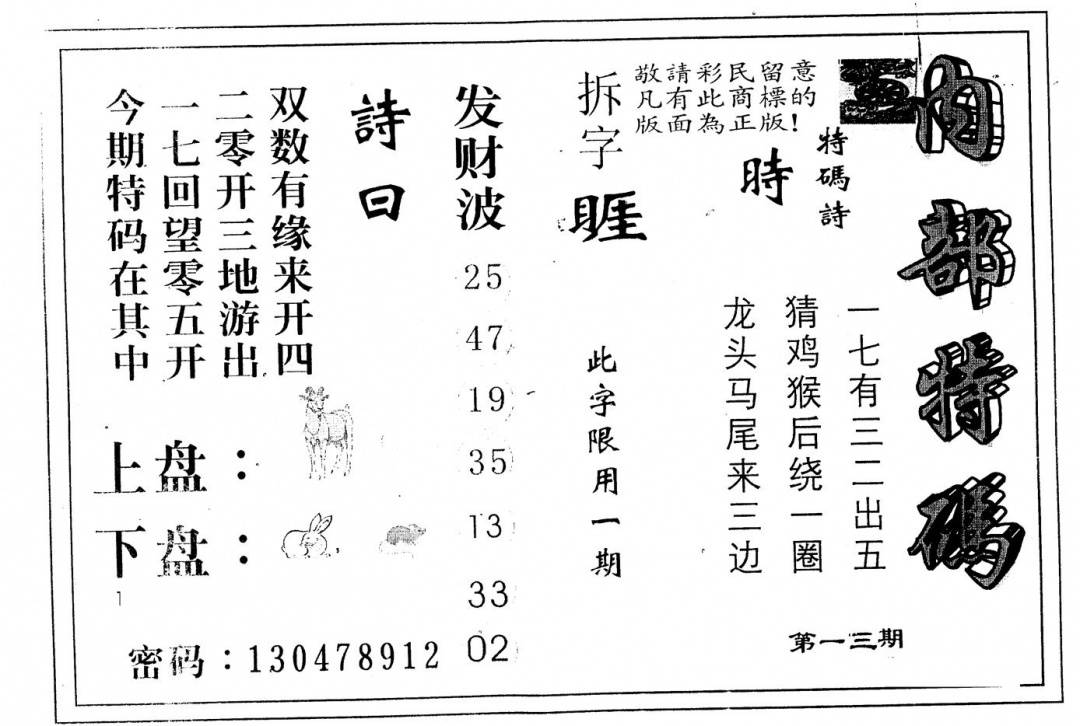 内部特碼
敬請彩民留意
凡有此商標的
版面為正版!
特碼詩
時
一七有三二出五
猜鸡猴后绕一圈
龙头马尾来三边
第一三期
拆字
睚
此字限用一期
发财波
25
47
19
35
13
33
02
詩曰
双数有缘来开四
二零开三地游出
一七回望零五开
今期特码在其中
上盘：
下盘：
密码：130478912